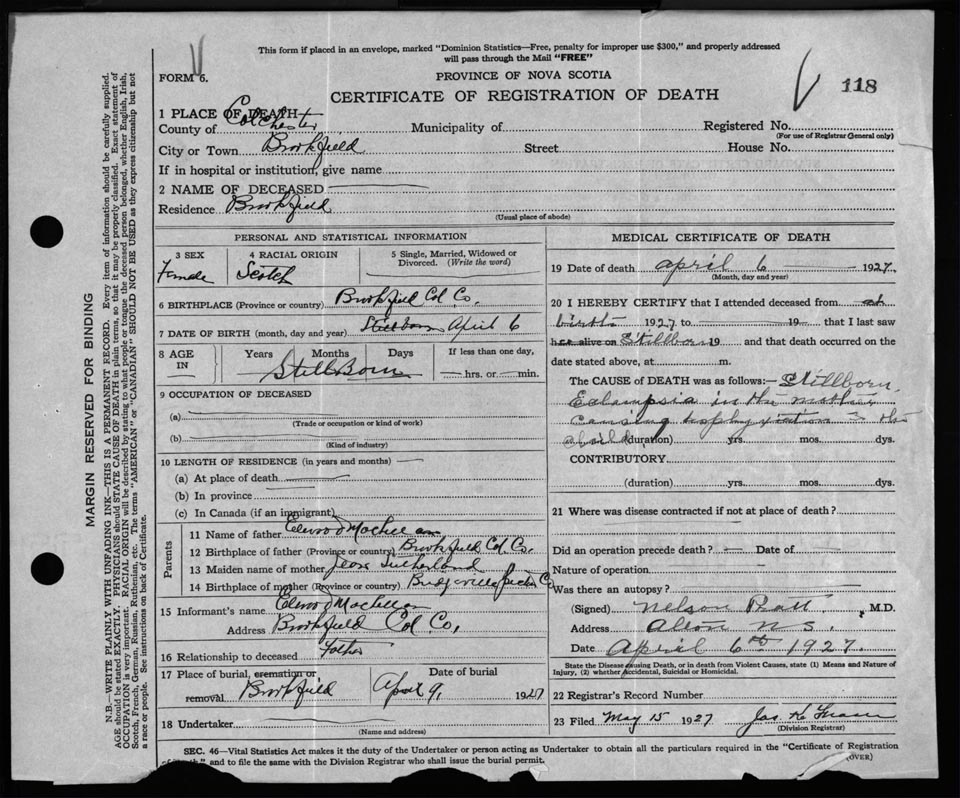 This form if placed in an envelope, marked "Dominion Statistics—Free, penalty for improper use $300," and properly addressed
will pass through the Mail "FREE"
FORM 6.
PROVINCE OF NOVA SCOTIA
118
CERTIFICATE OF REGISTRATION OF DEATH
1 PLACE OF DEATH
County of Colchester Municipality of Registered No.
(For use of Registrar General only)
City or Town Brookfield Street House No.
If in hospital or institution, give name
2 NAME OF DECEASED
Residence Brookfield
(Usual place of abode)
PERSONAL AND STATISTICAL INFORMATION
3 SEX 4 RACIAL ORIGIN 5 Single, Married, Widowed or
Divorced. (Write the word)
Female Scotch
6 BIRTHPLACE (Province or country) Brookfield Col Co.
7 DATE OF BIRTH (month, day and year) Stillborn April 6
8 AGE IN Years Months Days If less than one day,
StillBorn hrs. or min.
9 OCCUPATION OF DECEASED
(a)
(Trade or occupation or kind of work)
(b)
(Kind of industry)
10 LENGTH OF RESIDENCE (in years and months)
(a) At place of death
(b) In province
(c) In Canada (if an immigrant)
Parents
11 Name of father Elwood
12 Birthplace of father (Province or country) Brookfield Col Co.
13 Maiden name of mother Sutherland
14 Birthplace of mother (Province or country) Bridgeville Pictou Co
15 Informant's name Elwood
Address Brookfield Col Co,
16 Relationship to deceased Father
17 Place of burial, cremation or Date of burial
removal Brookfield April 9, 1927
18 Undertaker
(Name and address)
MEDICAL CERTIFICATE OF DEATH
19 Date of death april 6 1927
(Month, day and year)
20 I HEREBY CERTIFY that I attended deceased from at
birth 1927 to 19 that I last saw
h alive on Stillborn 19 and that death occurred on the
date stated above, at m.
The CAUSE OF DEATH was as follows:— Stillborn
Eclampsia in the mother
causing in the
child (duration) yrs. mos. dys.
CONTRIBUTORY
(duration) yrs. mos. dys.
21 Where was disease contracted if not at place of death?
Did an operation precede death? Date of
Nature of operation
Was there an autopsy?
(Signed) Nelson Pratt, M.D.
Address Alton N S.
Date April 6th 1927.
State the Disease Causing Death, or in death from Violent Causes, state (1) Means and Nature of
Injury, (2) whether Accidental, Suicidal or Homicidal.
22 Registrar's Record Number
23 Filed May 15 1927 Jas K Fraser
(Division Registrar)
SEC. 46—Vital Statistics Act makes it the duty of the Undertaker or person acting as Undertaker to obtain all the particulars required in the "Certificate of Registration
of Death" and to file the same with the Division Registrar who shall issue the burial permit.
(OVER)
MARGIN RESERVED FOR BINDING
N.B.—WRITE PLAINLY WITH UNFADING INK—THIS IS A PERMANENT RECORD. Every item of information should be carefully supplied.
AGE should be stated EXACTLY. PHYSICIANS should STATE CAUSE OF DEATH in plain terms, so that it may be properly classified. Exact statement of
OCCUPATION is very important. RACIAL ORIGIN will be described by stating to what people or tongue the deceased person belonged, whether English, Irish,
Scotch, French, German, Russian, Ruthenian, etc. The terms "AMERICAN" or "CANADIAN" SHOULD NOT BE USED as they express citizenship but not
a race or people. See instructions on back of Certificate.